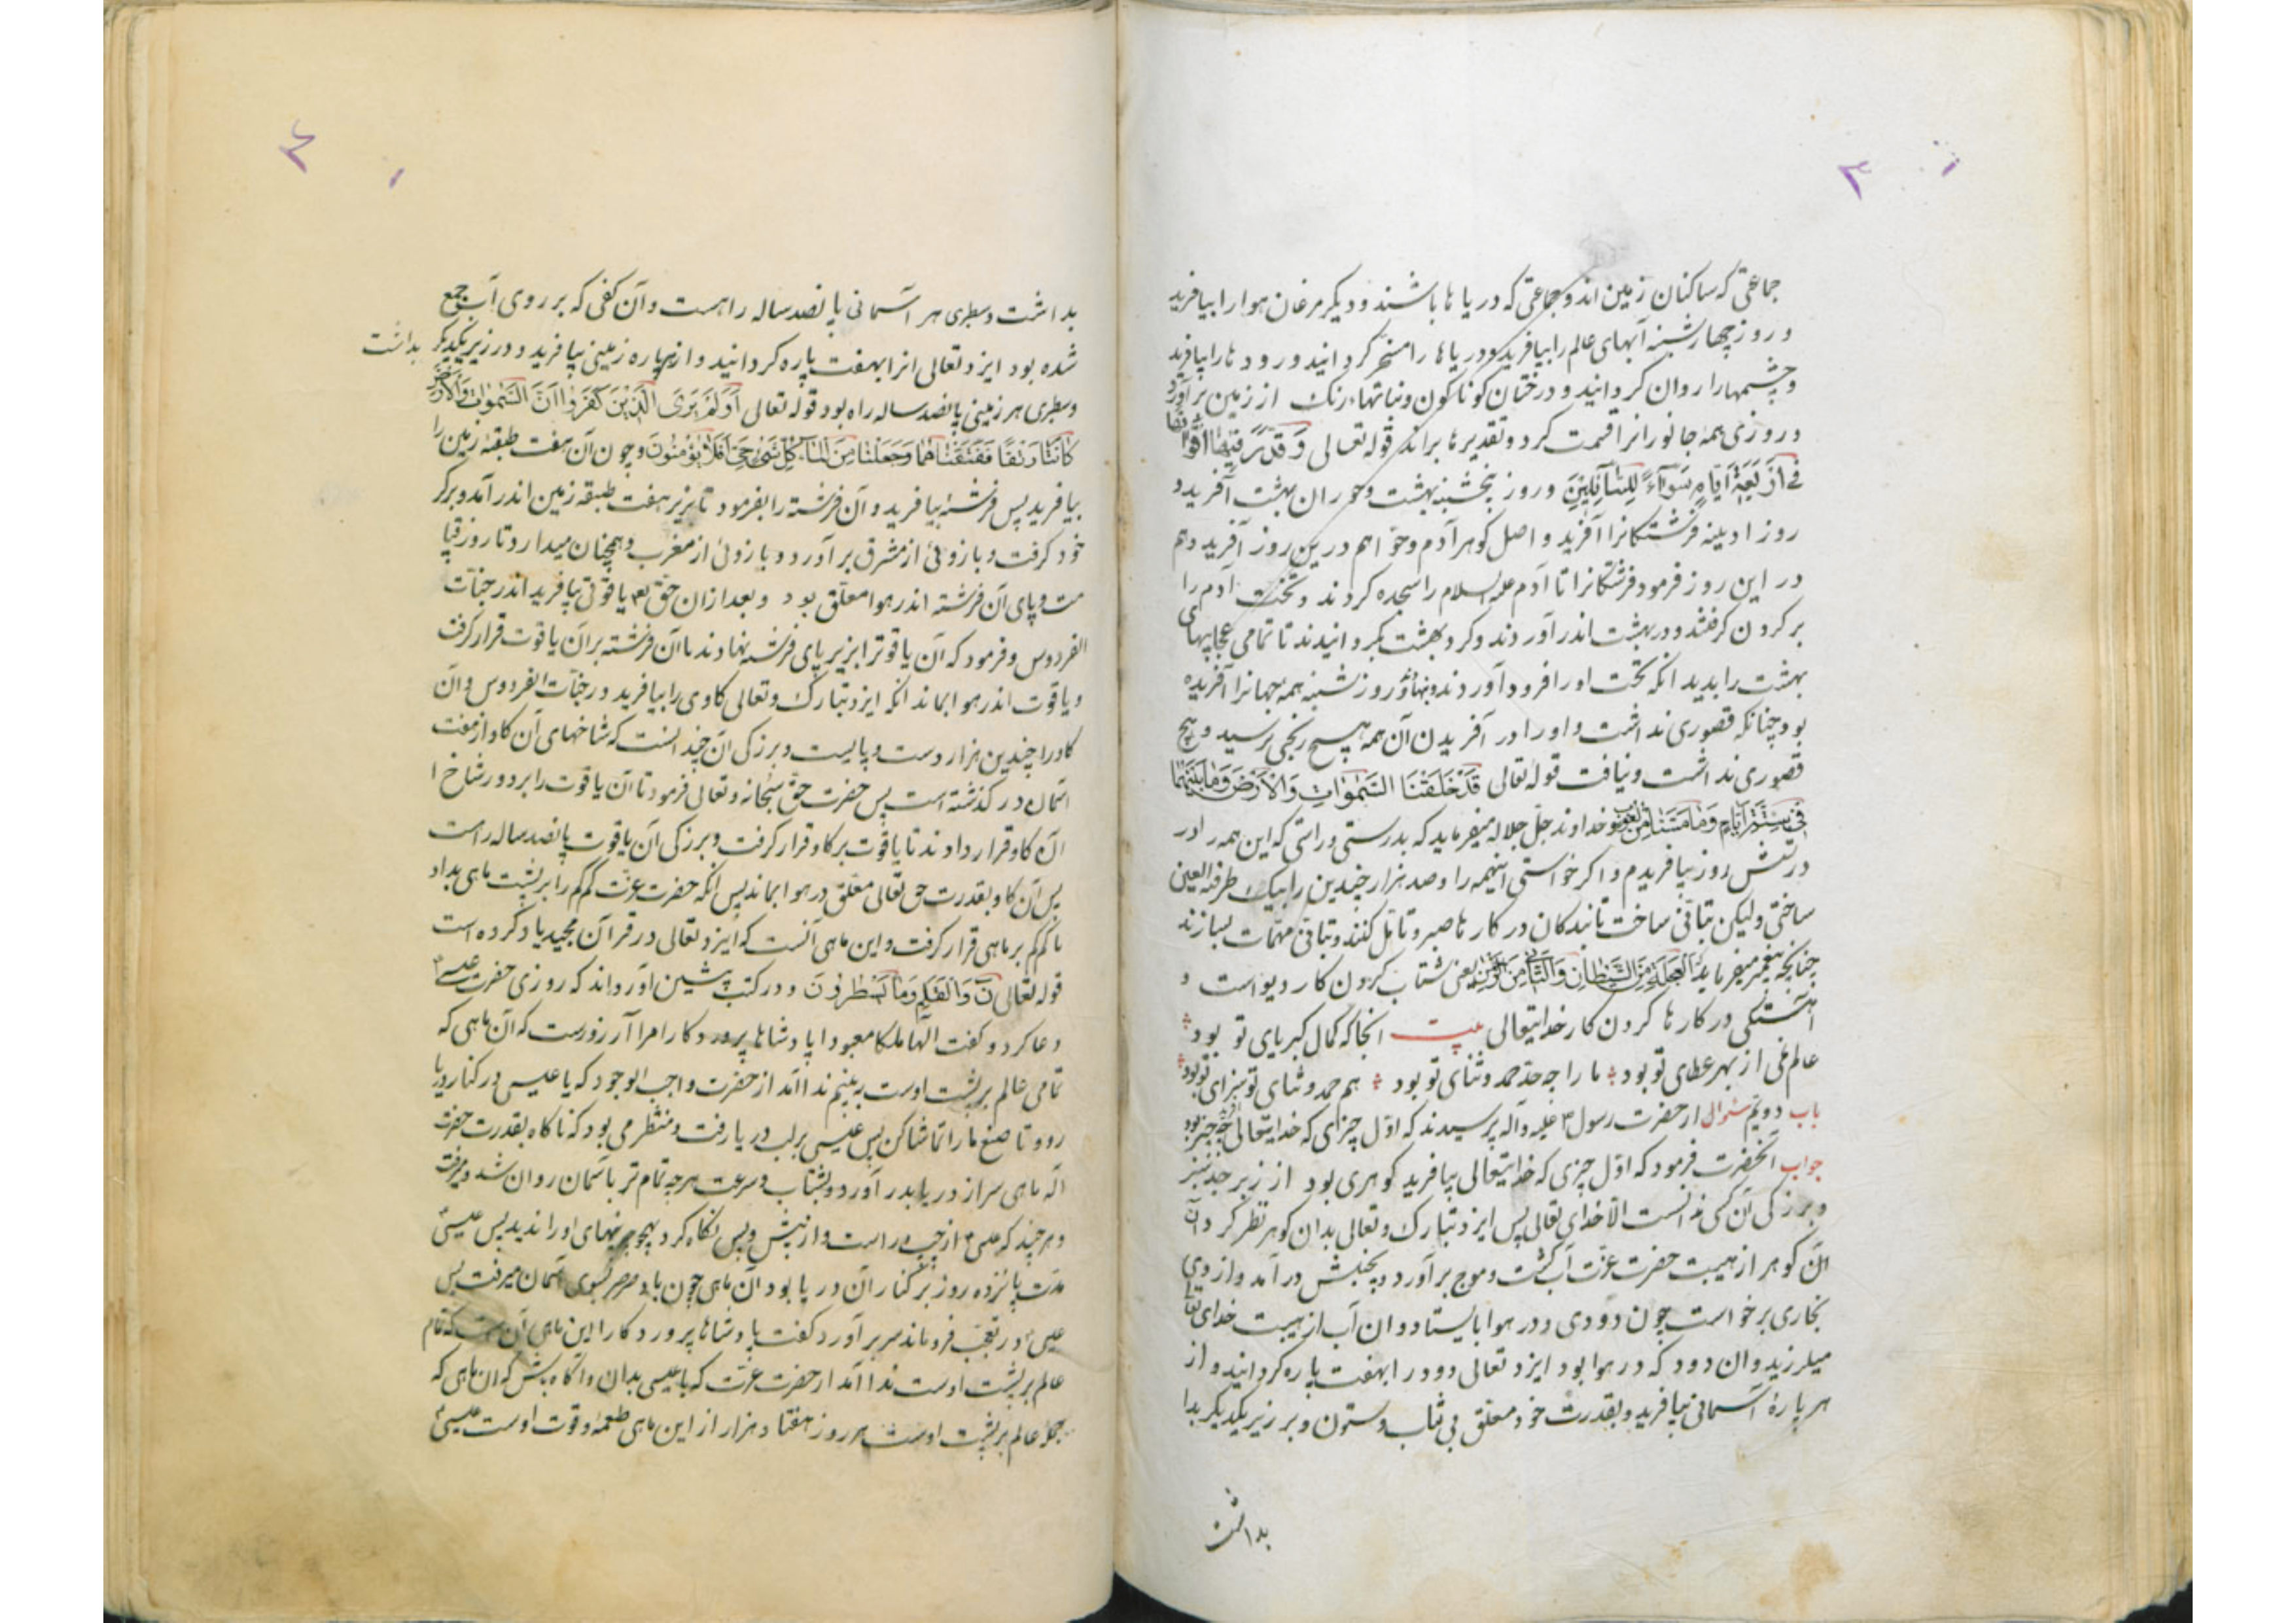 ۳
جماعتی که ساکنان زمین اند و جماعتی که دریا ها باشند و دیگر مرغان هوا را بیافرید
و روز چهارشنبه آبهای عالم را بیافرید و دریاها را مسخر کردانید و رود ها را بیافرید
و چشمهارا روان کردانید و درختان کوناکون و نباتها رنک از زمین برآورد
و روزی همه جانورانرا قسمت کرد و تقدیر ها براند قوله تعالی وَقَدَّرَ فِیهٰا اَقْوٰاتَهٰا
فِی اَرْبَعَةِ اَیّٰامٍ سَوٰآءً لِلسّٰآئِلِینَ و روز پنجشنبه بهشت و حوران بهشت آفرید و
روز ادینه فرشتکانرا آفرید و اصل کوهر آدم و حوا هم درین روز آفرید و هم
در این روز فرمود فرشتکانرا تا آدم علیه السلام را سجده کردند و تخت آدم را
بر کردن کرفتند و در بهشت اندر آوردند و کرد بهشت بکردانیدند تا تمامی عجایبهای
بهشت را بدید انکه تخت او را فرود آوردند و بنهاد و روز شنبه همه جهانرا آفریده
بود چنانکه قصوری نداشت و او را در آفریدن آن همه هیچ رنجی نرسید و هیچ
قصوری نداشت و نیافت قوله تعالی قَدْ خَلَقْنَا السَّمٰوٰاتِ وَالْاَرْضَ وَمٰا بَیْنَهُمٰا
فِی سِتَّةِ اَیّٰامٍ وَمٰا مَسَّنٰا مِنْ لُغُوبٍ خداوند جل جلاله میفرماید که بدرستی و راستی که این همه را در
در شش روز بیافریدم و اکر خواستی اینهمه را و صد هزار چندین را بیک طرفة العین
ساختی ولیکن بتانی ساخت تا بندکان در کار ها صبر و تامل کنند و بتانی مهمات بسازند
چنانچه پیغمبر میفرماید اَلْعَجَلَةُ مِنَ الشَّیْطٰانِ وَالتَّاَنّی مِنَ الرَّحْمٰنِ یعنی شتاب کردن کار دیو است و
آهستکی در کار ها کردن کار خدایتعالی بیت انجا که کمال کبریای تو بود
عالم نمی از بهر عطای تو بود ما را چه حد حمد و ثنای تو بود هم حمد و ثنای تو سزای تو بود
باب دویم سئوال از حضرت رسول علیه وآله پرسیدند که اول چیزی که خدایتعالی چه چیز بود
جواب آنحضرت فرمود که اول چیزی که خدایتعالی بیافرید کوهری بود از زبرجد سبز
و بزرکی آن کسی ندانست الا خدای تعالی پس ایزد تبارک و تعالی بدان کوهر نظر کرد و آن
الن کوهر از هیبت حضرت عزت آب کشت و موج برآورد و بجنبش درآمد و از وی
بخاری برخواست چون دودی و در هوا بایستاد و ان آب از هیبت خدای تعالی
میلرزید و ان دود که در هوا بود ایزد تعالی دود را بهفت پاره کردانید و از
هر پارهٔ آسمانی بیافرید و بقدرت خود معلق بی تناب و ستون و بر زیر یکدیکر بدا
بداشت
۴
بداشت و سطبری هر آسمانی پانصد ساله راهست و آن کفی که بر روی آب جمع
شده بود ایزد تعالی انرا بهفت پاره کردانید و از هر پاره زمینی بیافرید و در زیر یکدیکر بداشت
و سطبری هر زمینی پانصد ساله راه بود قوله تعالی اَوَلَمْ یَرَی الَّذِینَ کَفَرُوا اَنَّ السَّمٰوٰاتِ وَالْاَرْضَ
کٰانَتٰا رَتْقًا فَفَتَقْنٰاهُمٰا وَجَعَلْنٰا مِنَ الْمٰآءِ کُلَّ شَیْءٍ حَیٍّ اَفَلٰا یُؤْمِنُونَ و چون آن هفت طبقه زمین را
بیافرید پس فرشتهٔ بیافرید و آن فرشته را بفرمود تا بزیر هفت طبقه زمین اندر آمد و بر کر
خود کرفت و بازوئی از مشرق برآورد و بازوئی از مغرب و همچنان میدارد تا روز قیا
مت و پای آن فرشته اندر هوا معلق بود و بعد از ان حق تع یاقوتی بیافرید اندر جنات
الفردوس و فرمود که آن یاقوترا بزیر پای فرشته نهادند تا آن فرشته بر ان یاقوت قرار کرفت
و یاقوت اندر هوا بماند انکه ایزد تبارک و تعالی کاوی را بیافرید در جنات الفردوس و آن
کاو را چندین هزار دست و پایست و بزرکی آن چندانست که شاخهای آن کاو از هفت
آسمان در کذشته است پس حضرت حق سبحانه و تعالی فرمود تا آن یاقوت را بر دور شاخ ا
ان کاو قرار دادند تا یاقوت بر کاو قرار کرفت و بزرکی آن یاقوت پانصد ساله راست
پس آن کاو بقدرت حق تعالی معلق در هوا بماند پس انکه حضرت عزت کمکم را بر پشت ماهی بداد
تا کمکم بر ماهی قرار کرفت و این ماهی آنست که ایزد تعالی در قرآن مجید یاد کرده است
قوله تعالی نٓ وَالْقَلَمِ وَمٰا یَسْطُرُونَ و در کتب پیشین آورداند که روزی حضرت عیسی
دعا کرد و کفت الها ملکا معبودا پادشاها پروردکارا مرا آرزوست که آن ماهی که
تمامی عالم بر پشت اوست به بینم ندا آمد از حضرت واجب الوجود که یا عیسی در کنار دریا
رو و تا صنع ما را تماشا کن پس عیسی بر لب دریا رفت و منتظر می بود که ناکاه بقدرت حضرت
اله ماهی سر از دریا بدر آورد و بشتاب و سرعت هرچه تمام تر باسمان روان شد و میرفت
و هر چند که عیسی از چپ و راست و از پیش و پس نکاه کرد هیچ نهای او را ندید پس عیسی
مدت پانزده روز بر کنار آن دریا بود آن ماهی چون باد صرصر بسوی آسمان میرفت پس
عیسی در تعجب فروماند سر برآورد کفت پادشاها پروردکارا این ماهی آن هست که تمام
عالم بر پشت اوست ندا آمد از حضرت عزت که یا عیسی بدان و آکاه باش که ان ماهی که
جملهٔ عالم بر پشت اوست هر روز هفتاد هزار از این ماهی طعمه و قوت اوست عیسی